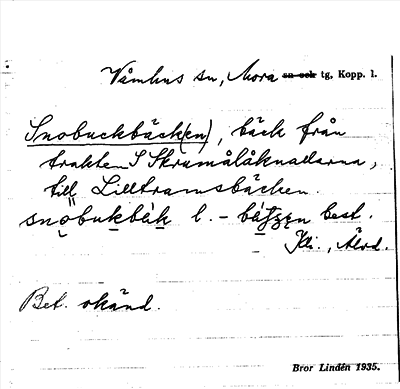 Våmhus sn, Mora ~~sn och~~ tg, Kopp. l.
Snobuckbäck(en), bäck från
trakten S Skrumålåknallarna,
till Lilltramsbäcken.
snobukbäk l. - best.
, Älvd.
Bet. okänd.
Bror Lindén 1935.